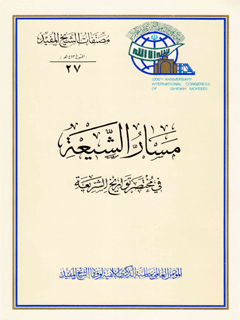 مصنفات الشيخ المفيد
٢٧
1000TH ANNIVERSARY
INTERNATIONAL CONGRESS
OF SHEIKH MOFEED
مسار الشيعة
في مختصر تواريخ الشريعة
المؤتمر العالمي بمناسبة الذكرى الألفية لوفاة الشيخ المفيد